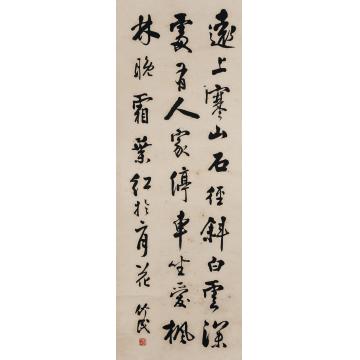 遠上寒山石徑斜白雲深
處有人家停車坐愛楓
林晚霜葉紅於二月花